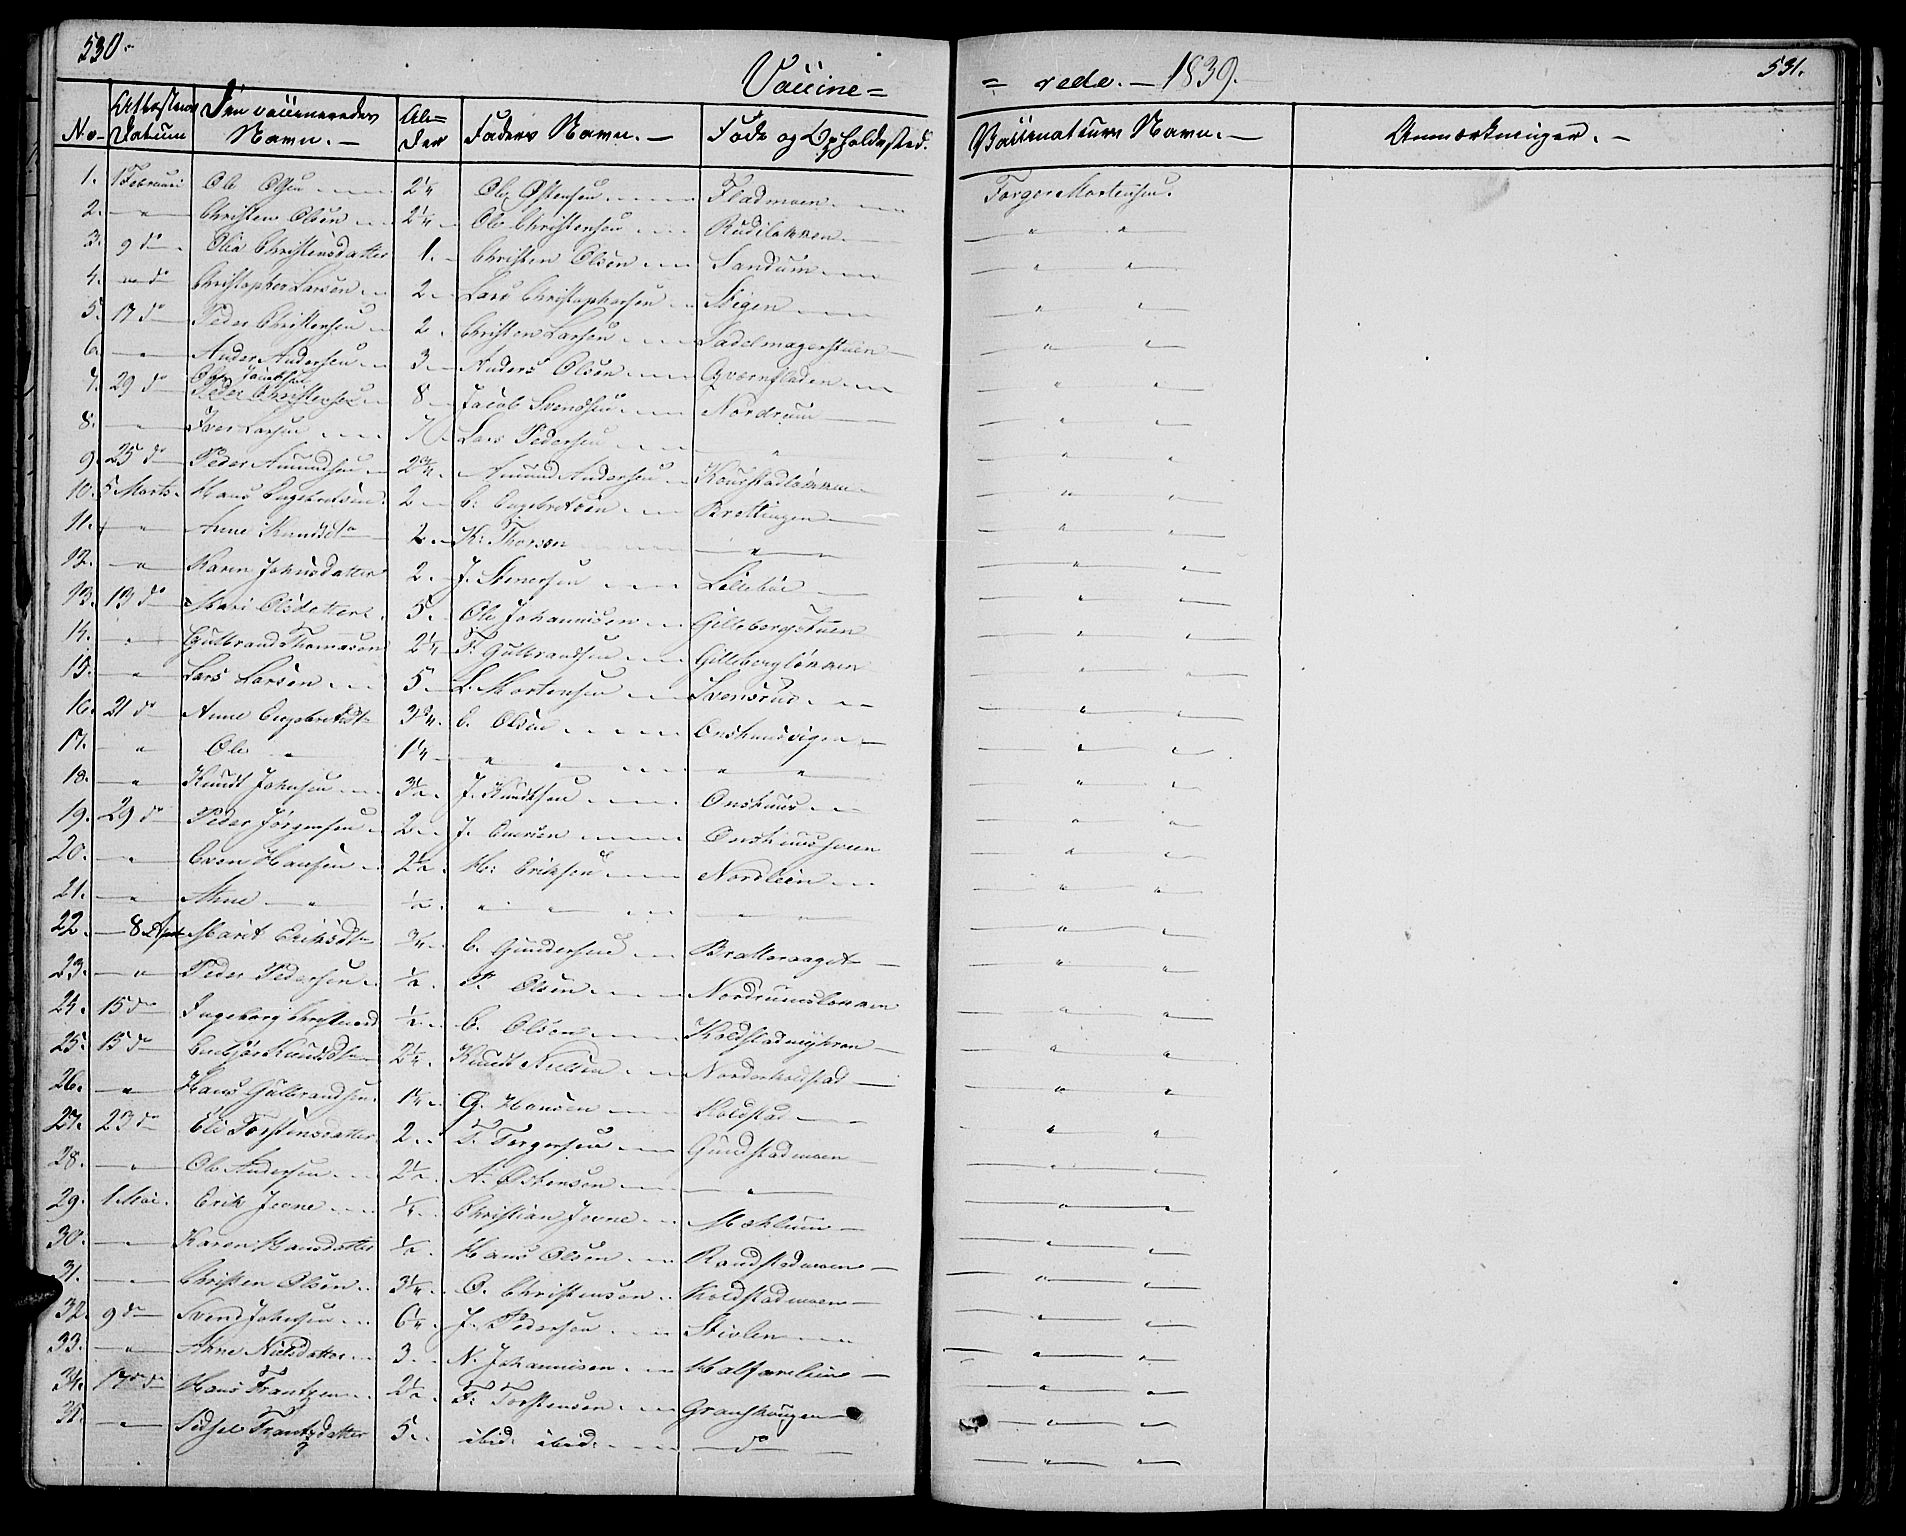 530.
Vaccine=
= rede. — 1839.
531.
No Attestens Datum Den vaccineredes Navn. — Alder Faders Navn. — Føde og Opholdssted. Vaccinateurs Navn. — Anmærkninger. —
1. 1 Februari Ole Olsen 2 1/4 Ole Østensen Fladmoen Torger Mortensen.
2. " Christen Olsen 2 1/4 Ole Christensen Rudiløkken " "
3. 9 do Olia Christensdatter 1. Christen Olsen Sandum " "
4. do Christopher Larsen 2 Lars Christophersen Stigen " "
5. 17 do Peder Christensen 2 Christen Larsen Sadelmagerstuen " "
6. " Anders Andersen 3 Anders Olsen Qværnfladen " "
7. 29 do Ole Jacobsen 8 Jacob Svendsen Nordrum " "
8. " Iver Larsen 7 Lars Pedersen " " "
9. 25 do Peder Amundsen 2 3/4 Amund Andersen " "
10. 5 Marts Hans Engebretsen 2 E. Engebretsen Brettingen " "
11. " Anne Knudsdt 2 K. Thorsen " " "
12. " Karen Johnsdatter 2 J. Stenersen Lillebøe " "
13. 13 do Mari Olsdatter 5 Ole Johannisen Gilleborgstuen " "
14. " Gulbrand Thomasen 2 1/4 T. Gulbrandsen Gilleborgløkken " "
15. " Lars Larsen 5 L. Mortensen Svensrud " "
16. 21 do Anne Engebretsdt 3 3/4 E. Olsen " "
17. " Ole " 1 1/4 " " " " " "
18. " Knudt Johnsen 3 1/2 J. Knudtsen Onshuus " "
19. 29 do Peder Jørgensen 2 J. Evensen " "
20. " Even Hansen 2 1/2 H. Eriksen Nordlien " "
21. " Ahne " 1/2 " " " " "
22. 8 April Marit Eriksdt 3/4 E. Gundersen Bratteraaget " "
23. " Peder Pedersen 1/2 P. Olsen Nordrumsløkken " "
24. 15 do Ingeborg 1/2 C. Olsen Koldstadmyhren " "
25. 15 do Knudsdt 2 1/4 Knudt Nielsen Norderkoldstad " "
26. " Hans Gulbrandsen 1 1/4 G. Hansen Koldstad " "
27. 23 do Eli Torstensdatter 2 T. Torgersen Gundstadmoen " "
28. " Ole Andersen 2 1/2 A. Østensen " " "
29. 1 Mai Erik Jevne 1/4 Christian Jevne Mæhlum " "
30. " Karen Hansdatter 1/2 Hans Olsen Randstadmoen " "
31. " Christen Olsen 3 1/4 O. Christensen Koldstadmoen " "
32. 9 do Svend Johnsen 6 1/4 J. Pedersen Stislen " "
33. " Ahne Nielsdatter 3 N. Johannisen Halfarelien " "
34. 17 do Hans Frantzen 2 1/2 F. Torstensen Granshaugen " "
35. " Sidsel Frantzdatter 5 ibid. ibid. do " "